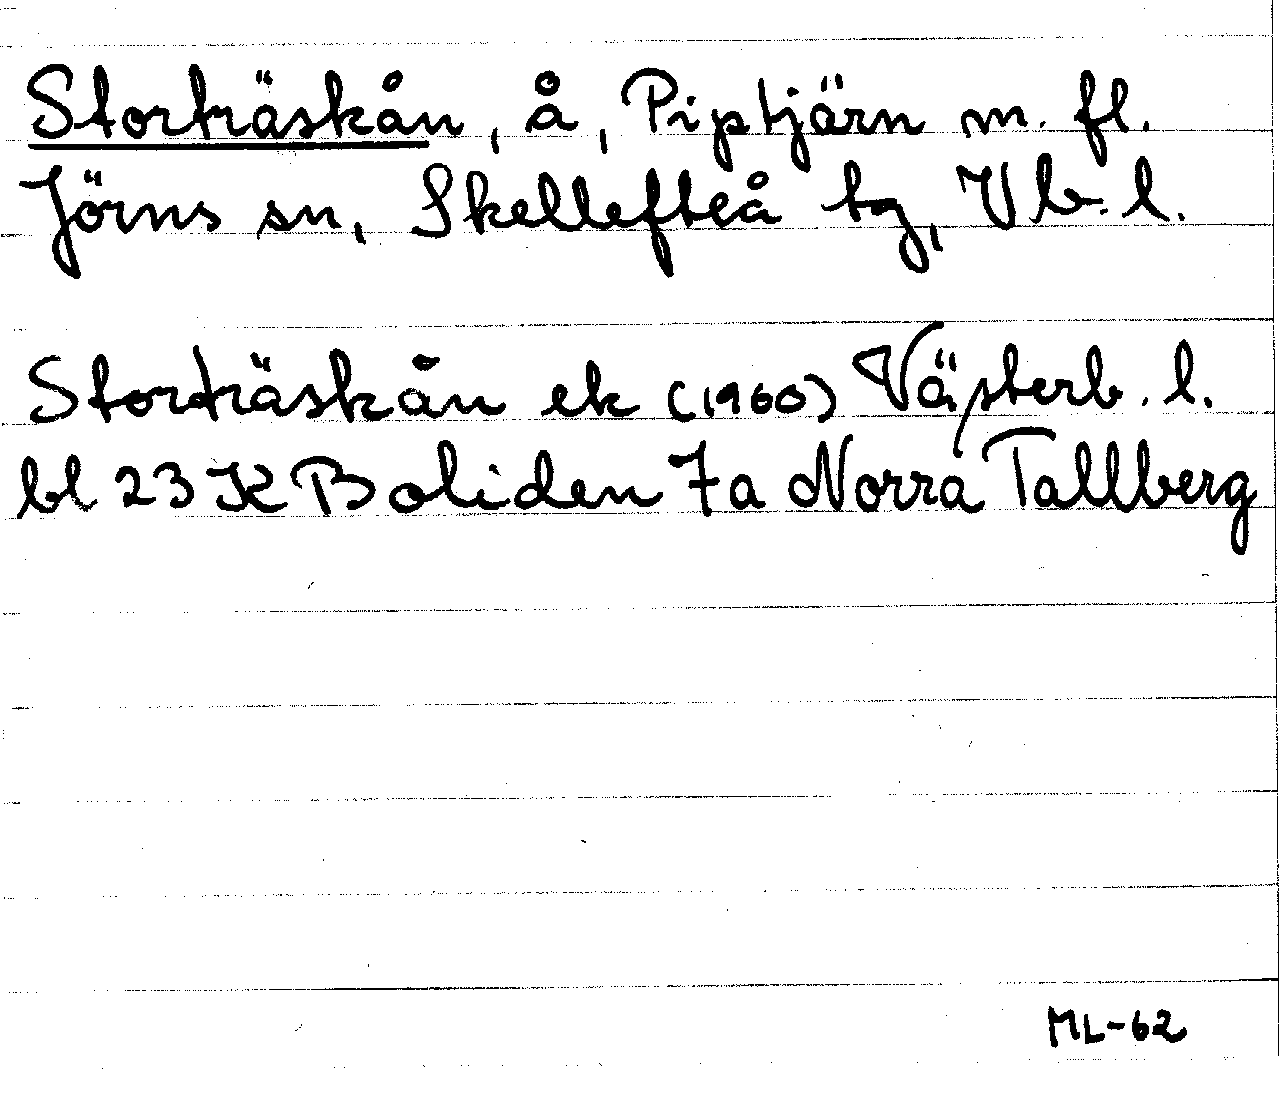 Storträskån, å, Piptjärn m. fl.
Jörns sn, Skellefteå tg, Vb. l.
Storträskån ek (1960) Västerb. l.
bl 23 K Boliden 7a Norra Tallberg
ML-62